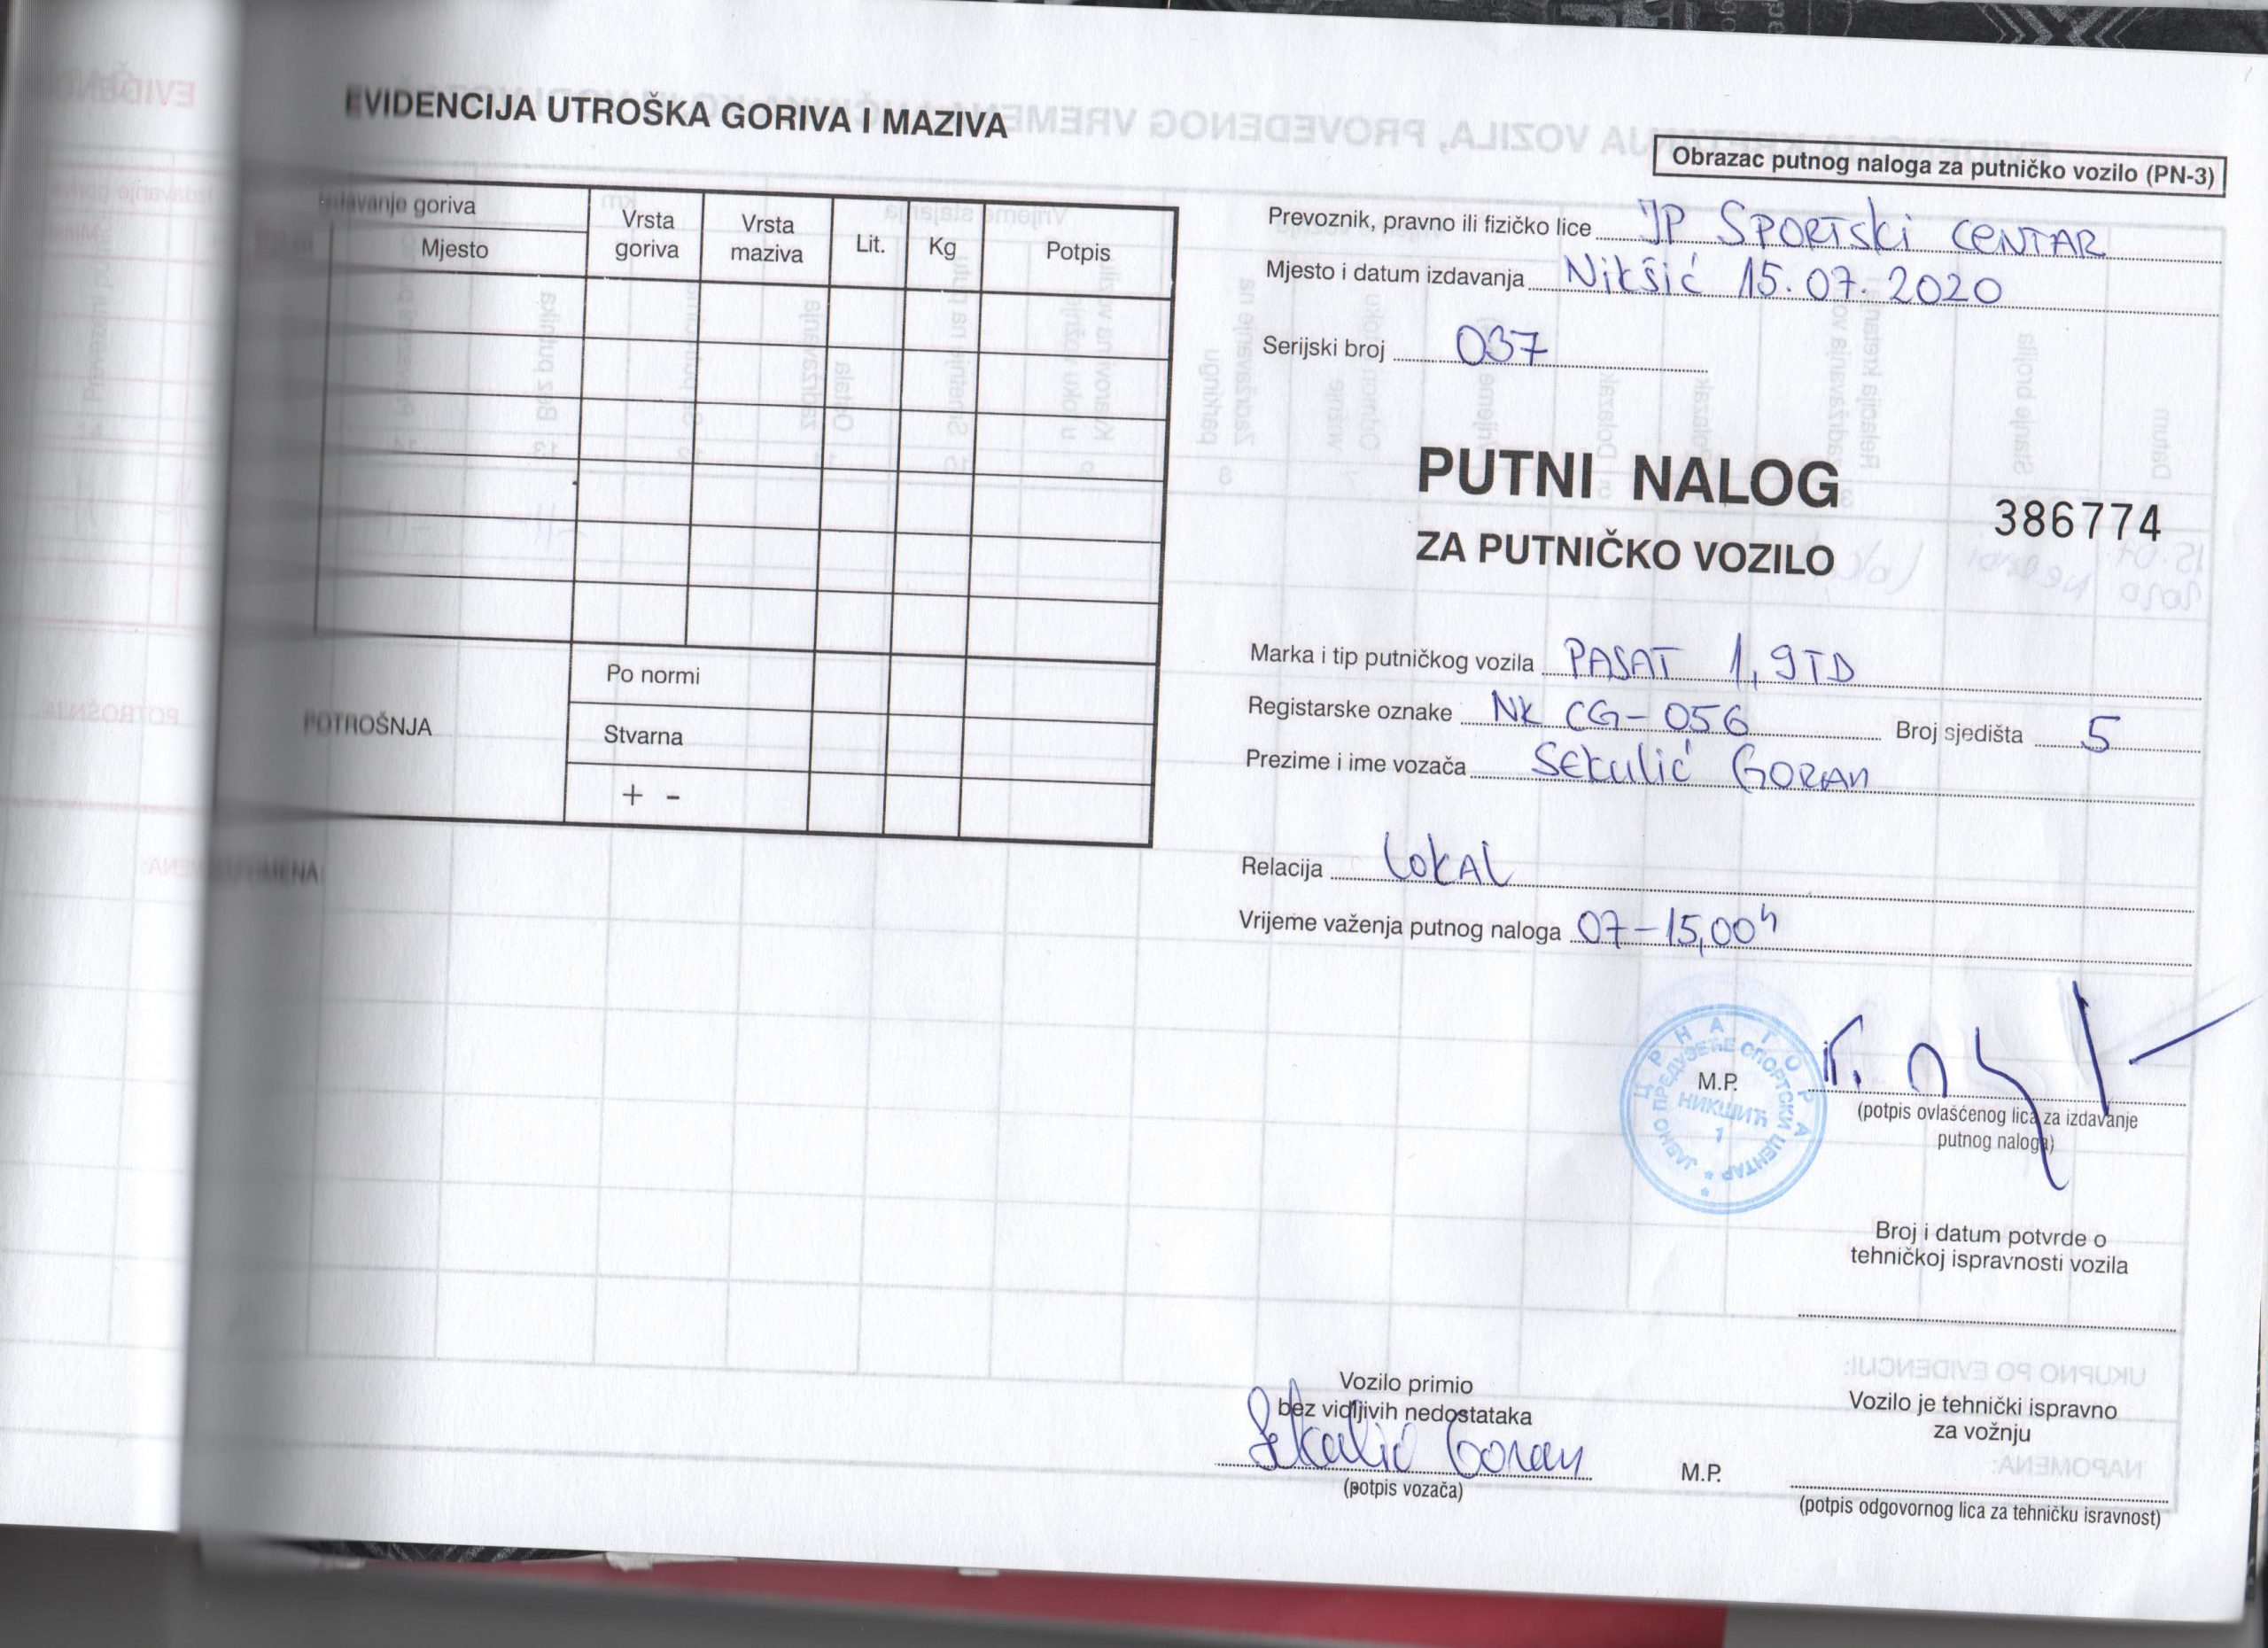 EVIDENCIJA UTROŠKA GORIVA I MAZIVA
Izdavanje goriva
Mjesto
Vrsta goriva
Vrsta maziva
Lit.
Kg
Potpis
POTROŠNJA
Po normi
Stvarna
+ -
Obrazac putnog naloga za putničko vozilo (PN-3)
Prevoznik, pravno ili fizičko lice JP SPORTSKI CENTAR
Mjesto i datum izdavanja Nikšić 15.07.2020
Serijski broj 037
PUTNI NALOG
386774
ZA PUTNIČKO VOZILO
Marka i tip putničkog vozila PASAT 1,9TD
Registarske oznake NK CG-056 Broj sjedišta 5
Prezime i ime vozača Sekulić Goran
Relacija lokal
Vrijeme važenja putnog naloga 07-15,00h
ЦРНА ГОРА
ЈАВНО ПРЕДУЗЕЋЕ СПОРТСКИ ЦЕНТАР
НИКШИЋ
1
M.P.
(potpis ovlašćenog lica za izdavanje
putnog naloga)
Broj i datum potvrde o
tehničkoj ispravnosti vozila
Vozilo primio
bez vidljivih nedostataka
Sekulić Goran
(potpis vozača)
M.P.
Vozilo je tehnički ispravno
za vožnju
(potpis odgovornog lica za tehničku isravnost)